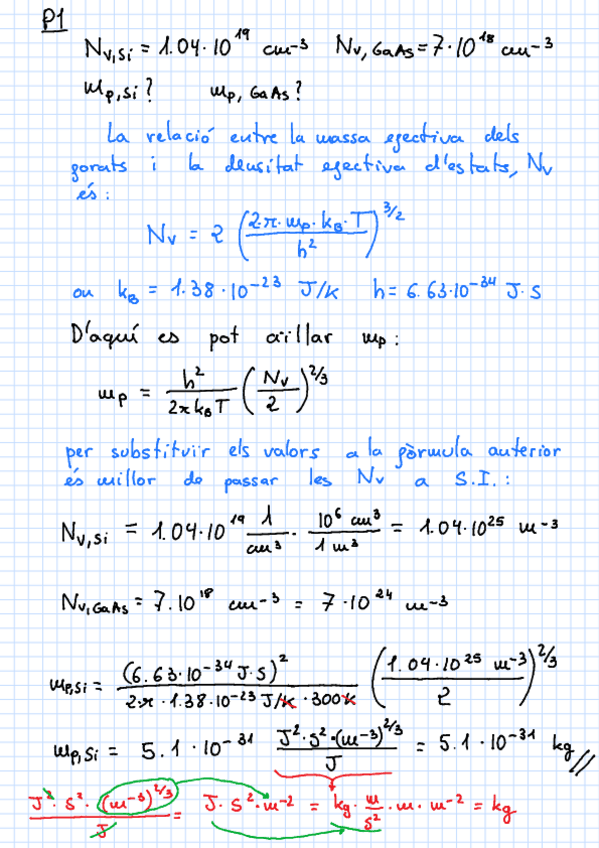 P1
N_{V,Si} = 1.04·10^{19} cm^{-3}   N_{V,GaAs} = 7·10^{18} cm^{-3}
m_{p,Si}?   m_{p,GaAs}?
La relació entre la massa efectiva dels
forats i la densitat efectiva d'estats, N_V
és:
N_V = 2 (2·π·m_p·k_B·T / h^2)^{3/2}
on k_B = 1.38·10^{-23} J/K   h = 6.63·10^{-34} J·S
D'aquí es pot aïllar m_p:
m_p = h^2 / 2πk_BT (N_V / 2)^{2/3}
per substituïr els valors a la fòrmula anterior
és millor de passar les N_V a S.I.:
N_{V,Si} = 1.04·10^{19} 1/cm^3 · 10^6 cm^3 / 1 m^3 = 1.04·10^{25} m^{-3}
N_{V,GaAs} = 7.10^{18} cm^{-3} = 7·10^{24} m^{-3}
m_{p,Si} = (6.63·10^{-34} J·S)^2 / 2·π·1.38·10^{-23} J/K · 300K (1.04·10^{25} m^{-3} / 2)^{2/3}
m_{p,Si} = 5.1·10^{-31} J^2·S^2·(m^{-3})^{2/3} / J = 5.1·10^{-31} kg //
J^2·S^2·(m^{-3})^{2/3} / J = J·S^2·m^{-2} = kg·m/s^2·m·m^{-2} = kg